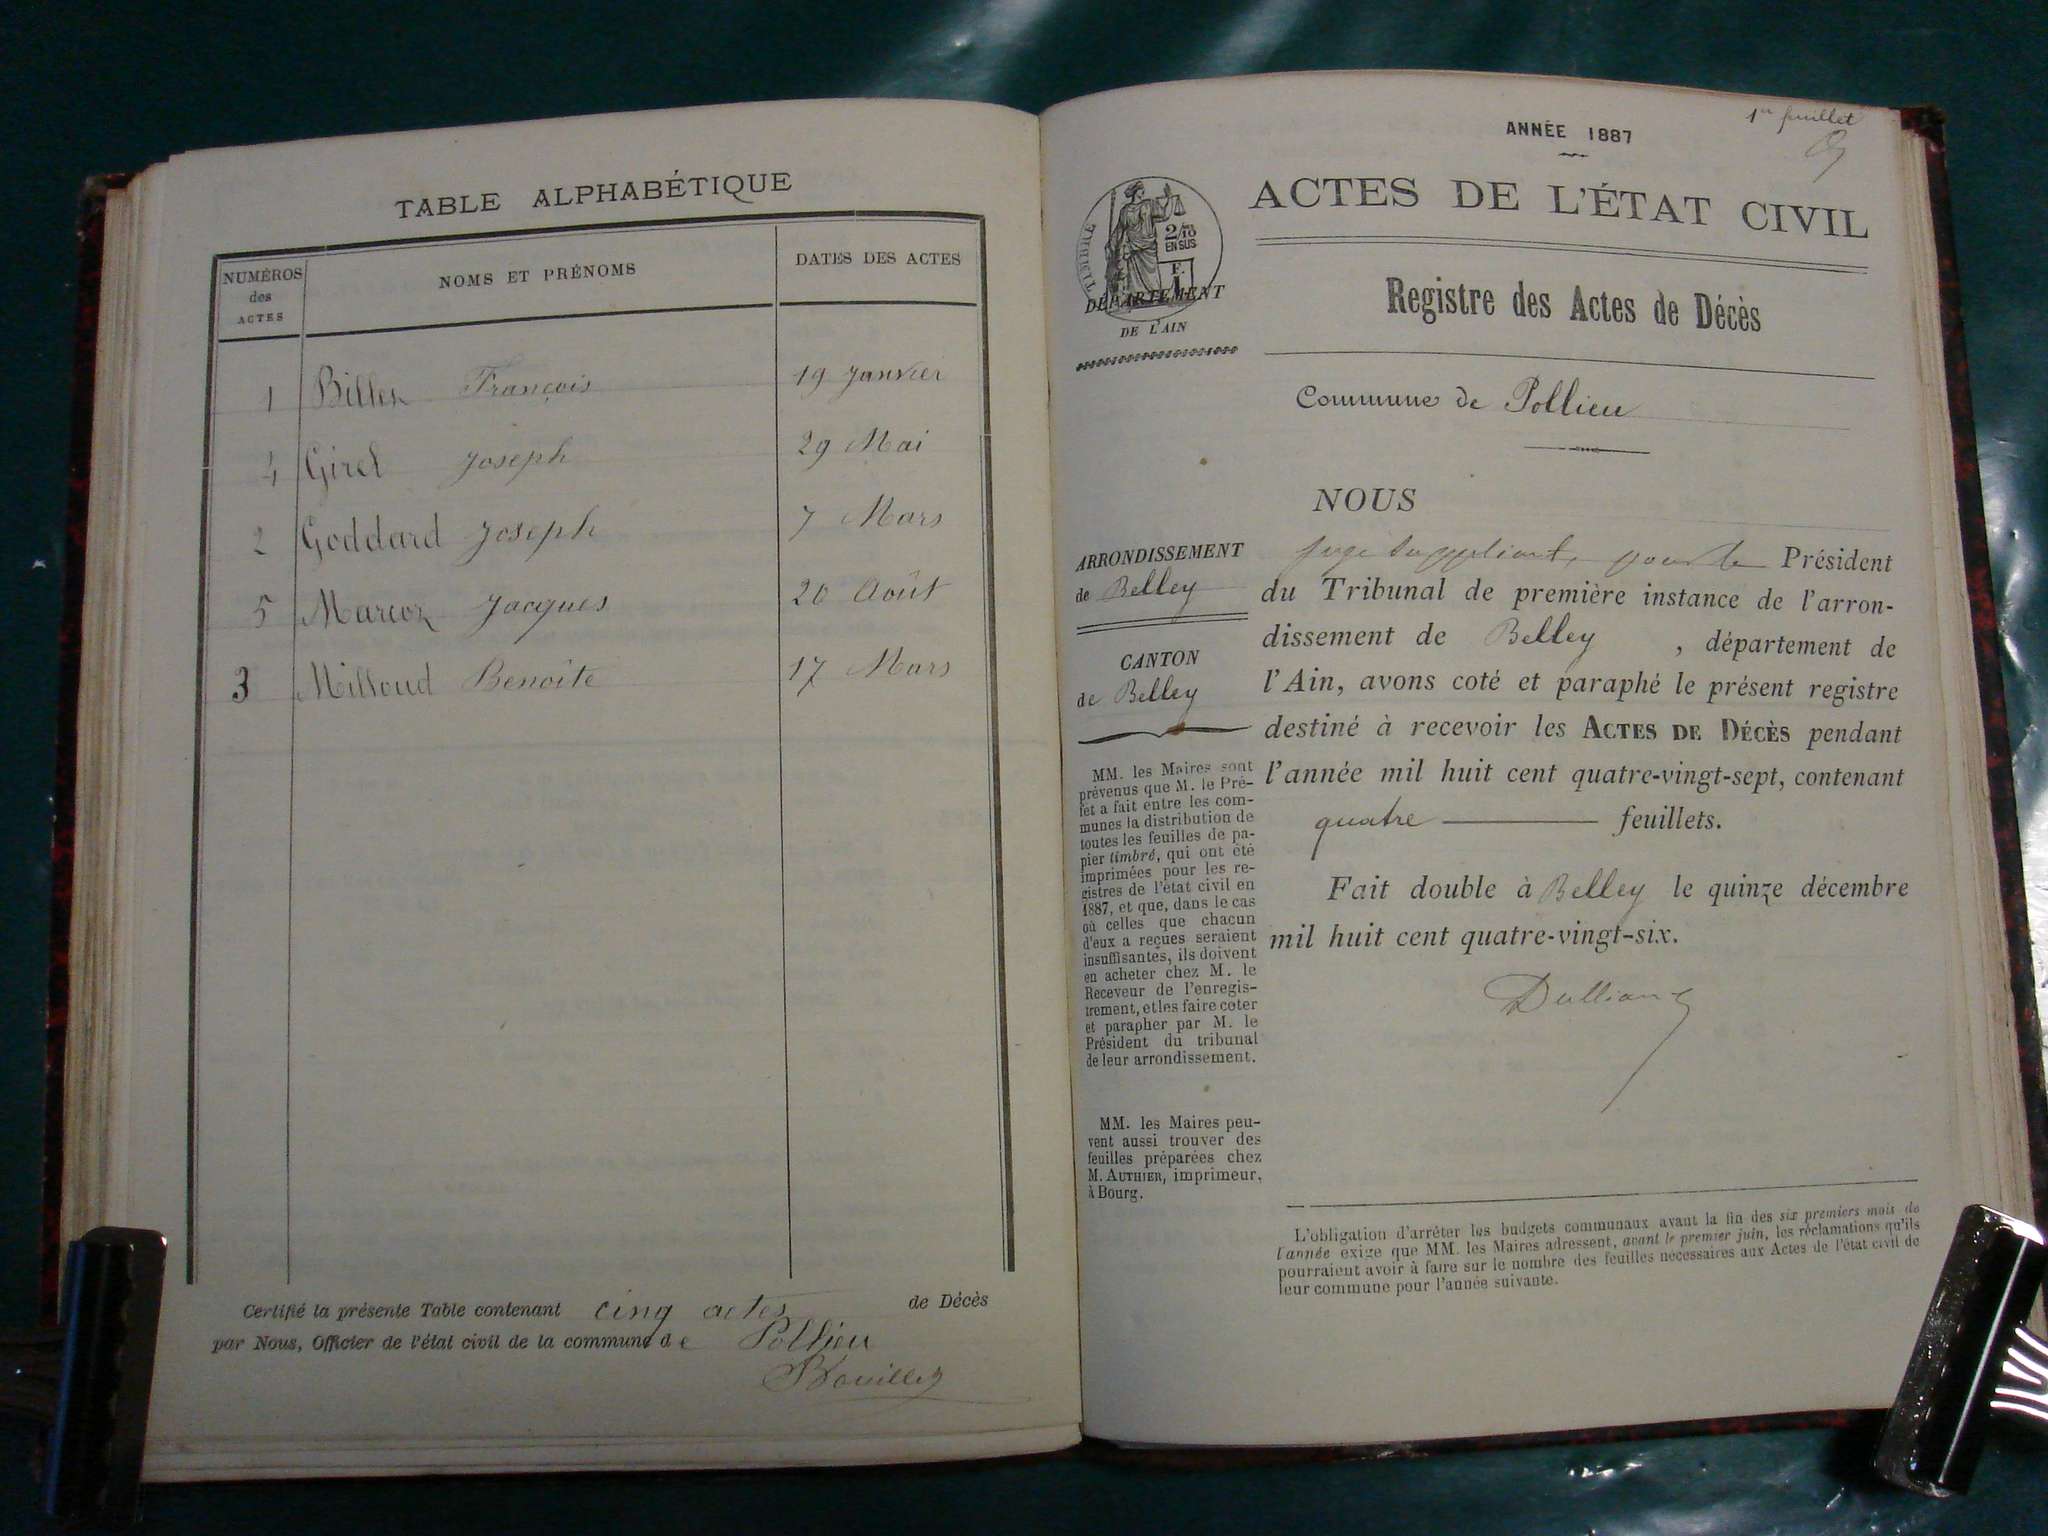 TABLE ALPHABÉTIQUE
NUMÉROS des ACTES NOMS ET PRÉNOMS DATES DES ACTES
1 Billex François 19 Janvier
4 Girel Joseph 29 Mai
2 Goddard Joseph 7 Mars
5 Marcoz Jacques 20 Août
3 Milloud Benoite 17 Mars
Certifié la présente Table contenant cinq actes de Décès
par Nous, Officier de l'état civil de la commune de Pollieu
1er feuillet
ANNÉE 1887
ACTES DE L'ÉTAT CIVIL
TIMBRE
2/10
EN SUS
F.
1
DÉPARTEMENT
DE L'AIN
Registre des Actes de Décès
Commune de Pollieu
ARRONDISSEMENT
de Belley
CANTON
de Belley
MM. les Maires sont
prévenus que M. le Pré-
fet a fait entre les com-
munes la distribution de
toutes les feuilles de pa-
pier timbré, qui ont été
imprimées pour les re-
gistres de l'état civil en
1887, et que, dans le cas
où celles que chacun
d'eux a reçues seraient
insuffisantes, ils doivent
en acheter chez M. le
Receveur de l'enregis-
trement, et les faire coter
et parapher par M. le
Président du tribunal
de leur arrondissement.
MM. les Maires peu-
vent aussi trouver des
feuilles préparées chez
M. AUTHIER, imprimeur,
à Bourg.
NOUS
juge suppléant, pour le Président
du Tribunal de première instance de l'arron-
dissement de Belley , département de
l'Ain, avons coté et paraphé le présent registre
destiné à recevoir les ACTES DE DÉCÈS pendant
l'année mil huit cent quatre-vingt-sept, contenant
quatre feuillets.
Fait double à Belley le quinze décembre
mil huit cent quatre-vingt-six.
L'obligation d'arrêter les budgets communaux avant la fin des six premiers mois de
l'année exige que MM. les Maires adressent, avant le premier juin, les réclamations qu'ils
pourraient avoir à faire sur le nombre des feuilles nécessaires aux Actes de l'état civil de
leur commune pour l'année suivante.